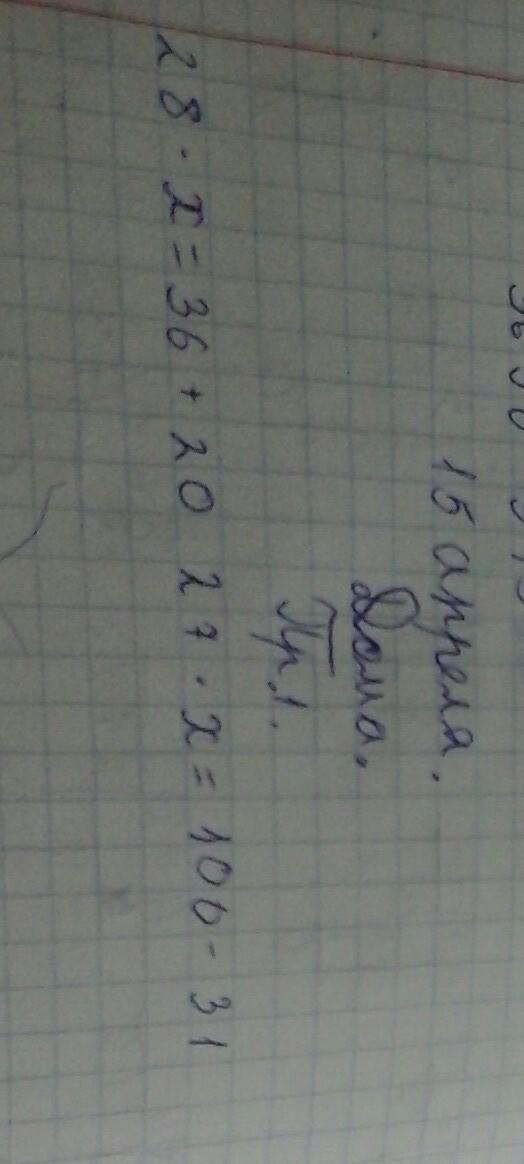 15 апреля.
Дома.
Пр. 1.
28 · x = 36 + 20 27 · x = 100 - 31